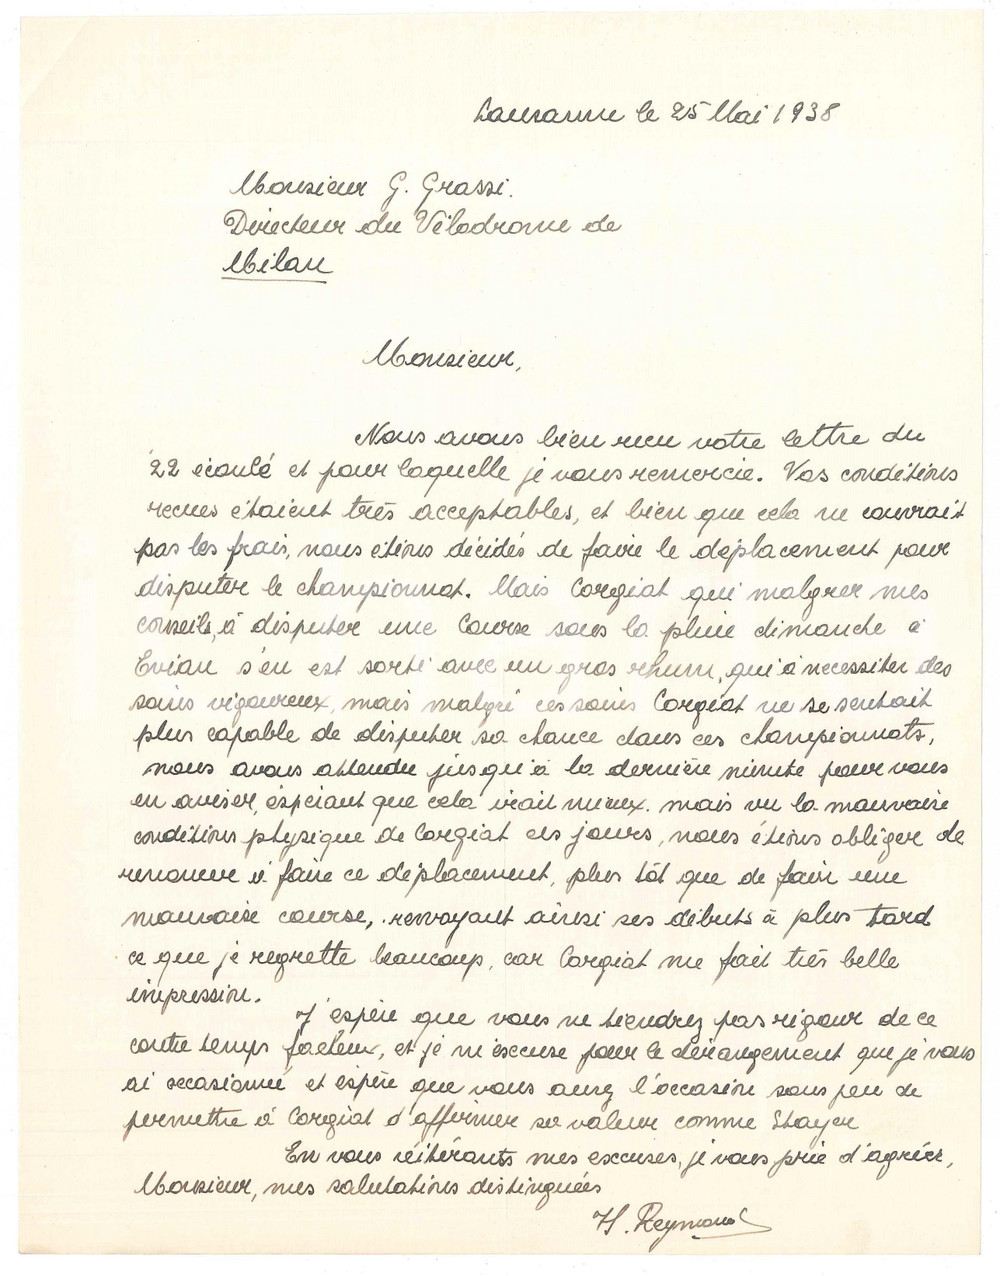 Lausanne le 25 Mai 1938
Monsieur G. Grassi.
Directeur du Vélodrome de
Milan
Monsieur,
Nous avons bien recu votre lettre du
22 écoulé et pour laquelle je vous remercie. Vos conditions
recues étaient très acceptables, et bien que cela ne couvrait
pas les frais, nous étions décidés de faire le déplacement pour
disputer le championnat. Mais Corgiat qui malgrer mes
conseils, à disputer une Course sous la pluie dimanche à
Evian s'en est sorti avec un gros rhum, qui à necessiter des
soins vigoureux, mais malgré ces soins Corgiat ne se sentait
plus capable de disputer sa chance dans ces championnats,
nous avons attendu jusqu'à la dernière minute pour vous
en aviser, éspérant que cela irait mieux. mais vu la mauvaise
conditions physique de Corgiat ces jours, nous étions obliger de
renoncer à faire ce déplacement, plus tôt que de faire une
mauvaise course, renvoyant ainsi ses débuts à plus tard
ce que je regrette beaucoup, car Corgiat me fait très belle
impression.
J'éspère que vous ne tiendrez pas rigour de ce
contre temps facheux, et je m'excuse pour le dérangement que je vous
ai occasionné et éspère que vous aurez l'occasion sous peu de
permettre à Corgiat d'affirmer sa valeur comme Stayer
En vous réitérants mes excuses, je vous prie d'agréer,
Monsieur, mes salutations distinguées
H. Reymond